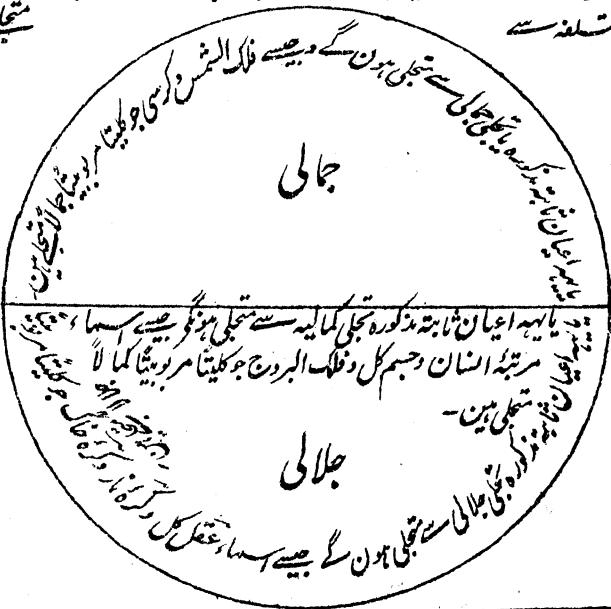 تلفہ سے
متجا
یا یہہ اعیان ثابتہ مذکورہ یا تجلی جمالی سے متجلی ہون گے وجیسے فلک الشمس وکرسی جو کلیتا مربوبیتاً جمالاً متجلے ہین۔
جمالی
یا یہہ اعیان ثابتہ مذکورہ تجلی کمالیہ سے متجلی ہونگے جیسے اسماء
مرتبۂ انسان وجسم کل وفلک البروج جو کلیتا مربوبیتاً کمالاً
متجلی ہین۔
جلالی
یا یہہ اعیان ثابتہ مذکورہ تجلی جلالی سے متجلی ہون گے جیسے اسماء عقل کل وکرۂ نار وکرۂ خاک جو کلیتاً